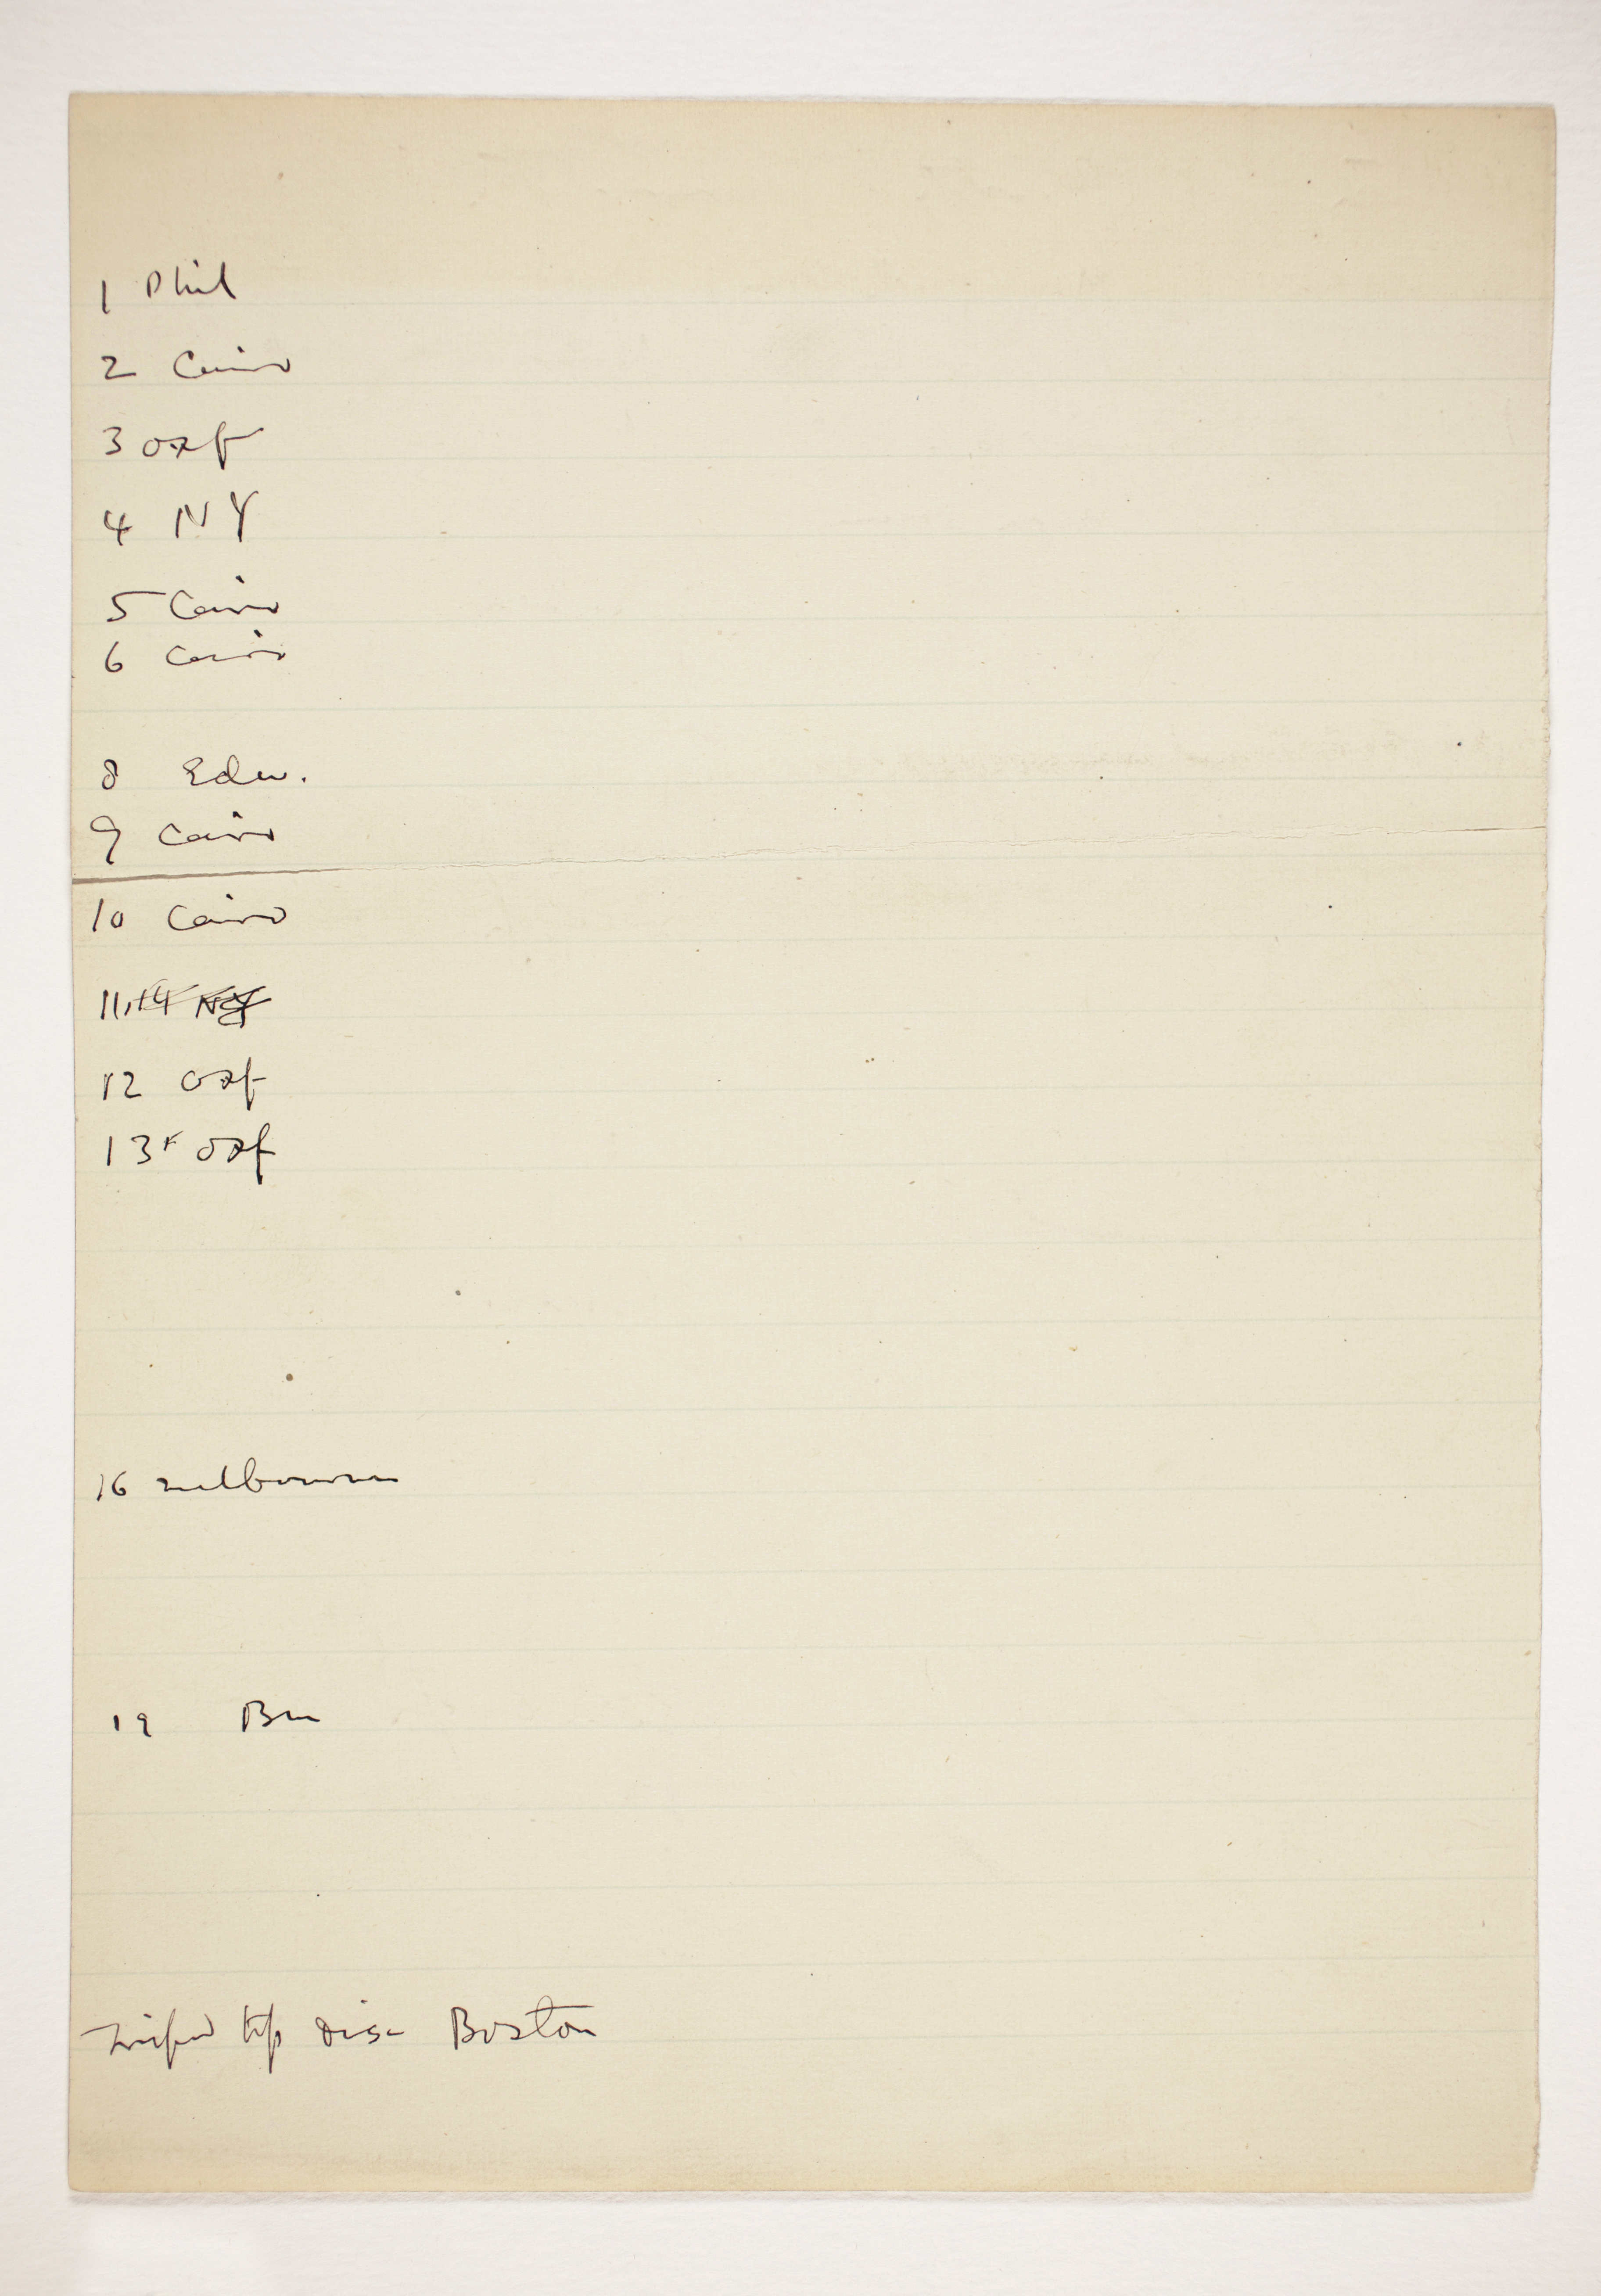 1 Phil
2 Cairo
3 Oxf
4 NY
5 Cairo
6 Cairo
8 Edw.
9 Cairo
10 Cairo
11,14 NY
12 Oxf
13 Oxf
16 Melbourne
19 Bm
disc Boston